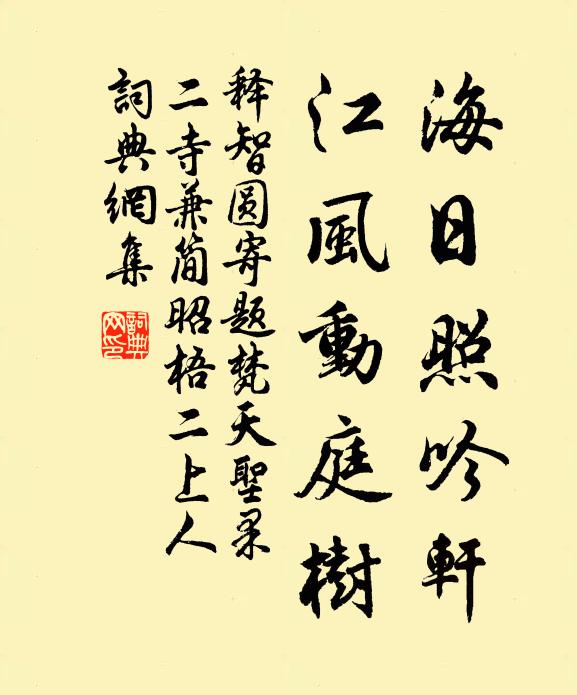 海日照吟軒
江風動庭樹
释智圆寄題梵天聖果
二寺兼简昭梧二上人
詞典網集
詞典網印